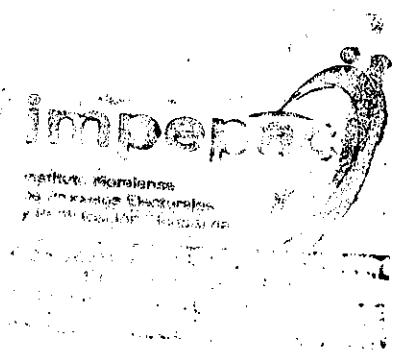 impepac
Instituto Morelense
de Procesos Electorales
y Participación Ciudadana